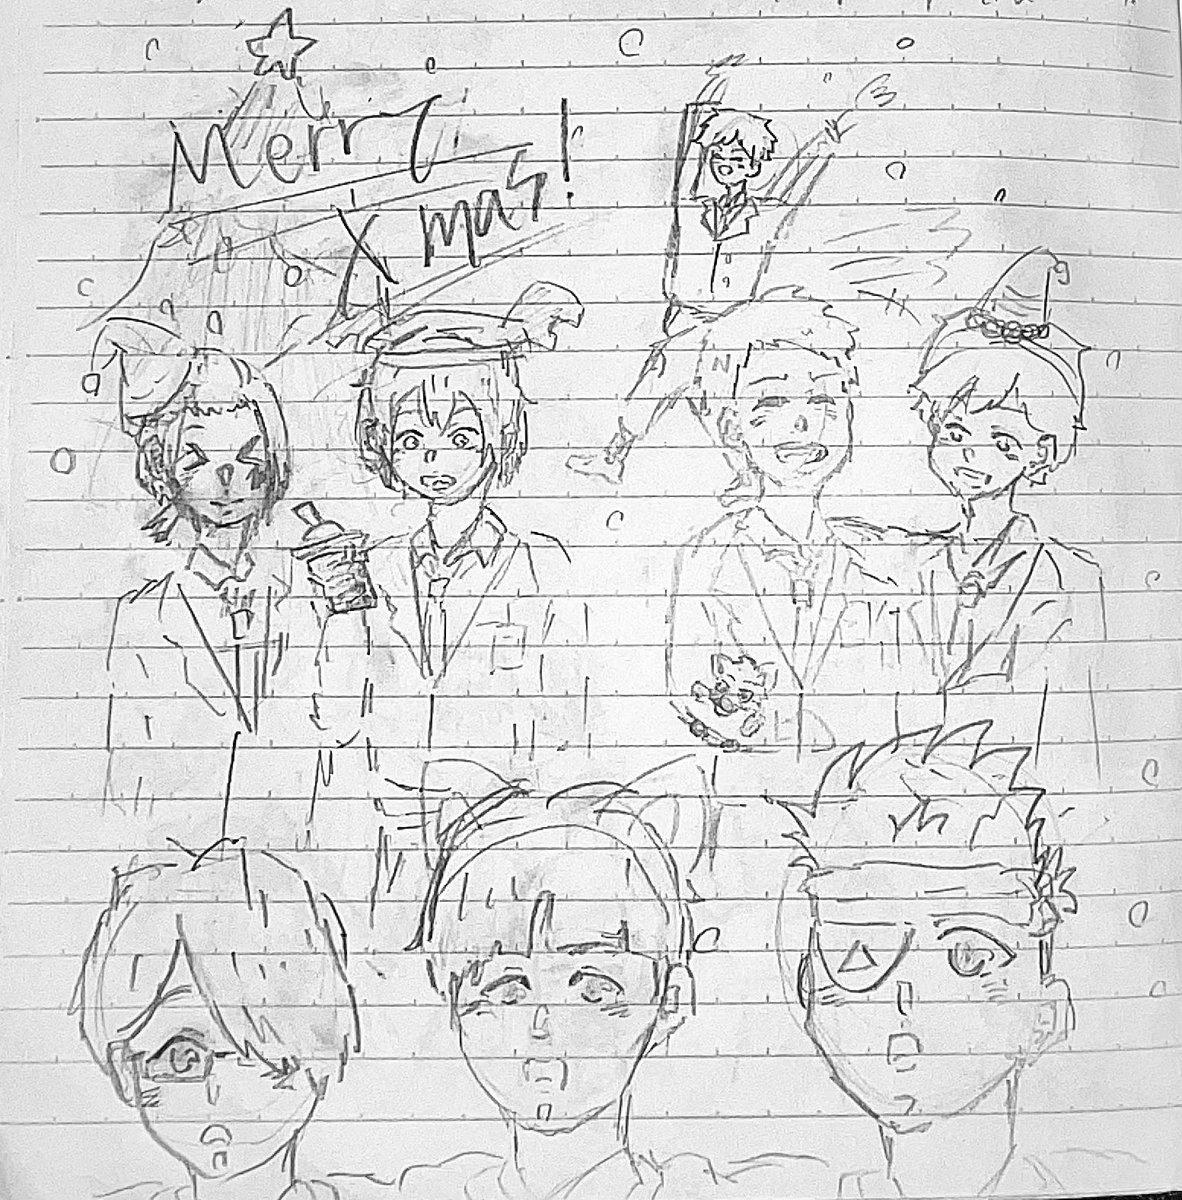 Merry
Xmas!